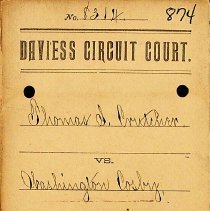 No. 8314. 874
DAVIESS CIRCUIT COURT.
Thomas S. Crutcher
VS.
Washington Cosby